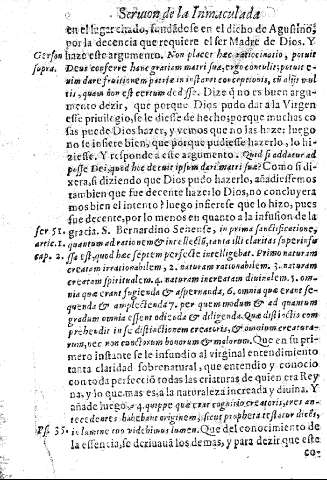 Sermon de la Inmaculada
en el lugar citado, fundādose en el dicho de Agustino,
por la decencia que requiere el ser Madre de Dios. Y
Gerson haze este argumento. Non placet hæc ratiocinatio, potuit
supra. Deus conferre hanc gratiam matri suæ, ergo contulit: potuit e-
nim dare fruitionem patriæ in instanti conceptionis, cū alijs mul-
tis, quam non est certum dedisse. Dize q̄ no es buen argu-
mento dezir, que porque Dios pudo dar a la Virgen
esse priuilegio, se le diesse de hecho; porque muchas co
sas puede Dios hazer, y vemos que no las haze: luego
no se infiere bien, que porque pudiesse hazerlo, lo hi-
ziesse. Y responde a este argumento. Quid si addatur ad
posse Dei, quod hoc decuit ipsum dari matri suæ? Como si di-
xera, si diziendo que Dios pudo hazerlo, añadiessemos
tambien que fue decente hazerlo Dios, no concluyera
mos bien el intento? luego infierese que lo hizo, pues
fue decente, por lo menos en quanto a la infusion de la
ser 51. gracia. S. Bernardino Senense, in prima sanctificatione,
artic. 1. quantum ad rationem & intellectū, tanta illi claritas superinfu
cap. 2. ssa est, quod hæc septem perfecte intelligebat. Primo naturam
creatam irrationabilem, 2. naturam rationabilem. 3. naturam
creatam spiritualem. 4. naturam increatam diuinam. 5. om-
nia quæ erant fugienda & aspernanda, 6. omnia quæ erant se-
quenda & amplectenda 7. per quem modum & ad quantum
gradum omnia essent odienda & diligenda. Quæ distinctio com
prehendit in se distinctionem creatoris, & omnium creatura-
rum, nec non cunctorum bonorum & malorum. Que en su pri-
mero instante se le infundio al virginal entendimiento
tanta claridad sobrenatural, que entendio y conocio
con toda perfeciō todas las criaturas de quien era Rey
na, y lo que mas es, a la naturaleza increada y diuina. Y
añade luego. 4. quippe quæ erat cognitio creatoris, tres an-
tecedentes habebant originem, sicut propheta testatur dicēs,
Ps. 35. in lumine tuo videbimus lumen. Que del conocimiento de
la essencia, se deriuauā los demas, y para dezir que este
co-